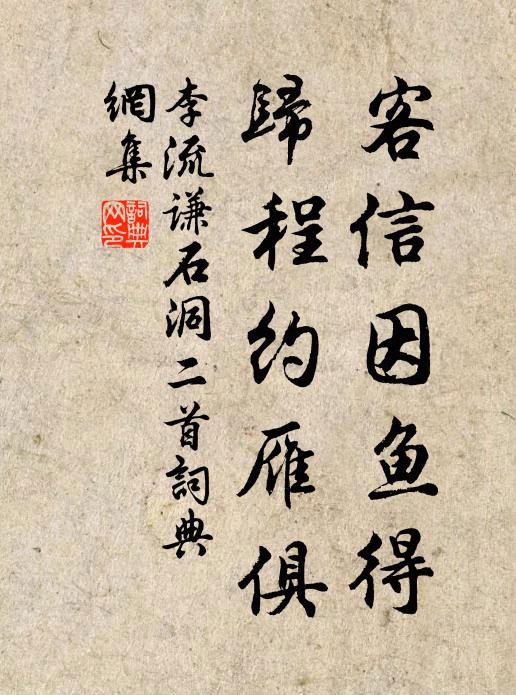 客信因鱼得
歸程約雁俱
李流谦石洞二首詞典
網集
詞典
网印